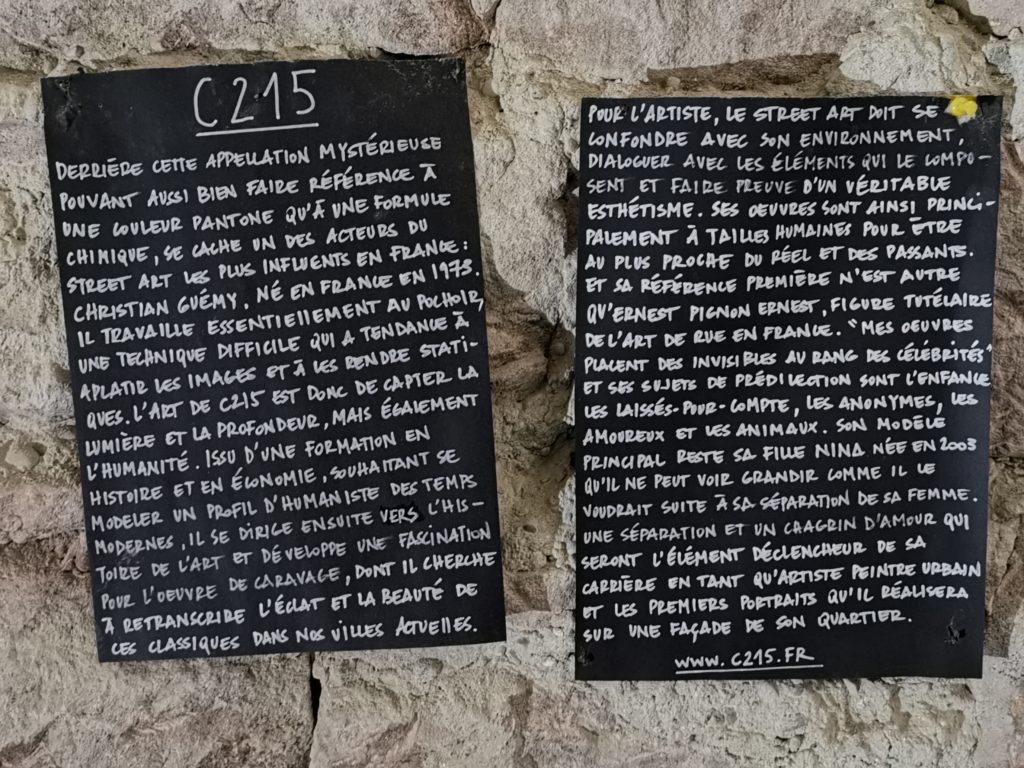 C215
DERRIÈRE CETTE APPELLATION MYSTÉRIEUSE
POUVANT AUSSI BIEN FAIRE RÉFÉRENCE À
UNE COULEUR PANTONE QU'À UNE FORMULE
CHIMIQUE, SE CACHE UN DES ACTEURS DU
STREET ART LES PLUS INFLUENTS EN FRANCE :
CHRISTIAN GUÉMY. NÉ EN FRANCE EN 1973.
IL TRAVAILLE ESSENTIELLEMENT AU POCHOIR,
UNE TECHNIQUE DIFFICILE QUI A TENDANCE À
APLATIR LES IMAGES ET À LES RENDRE STATI-
QUES. L'ART DE C215 EST DONC DE CAPTER LA
LUMIÈRE ET LA PROFONDEUR, MAIS ÉGALEMENT
L'HUMANITÉ. ISSU D'UNE FORMATION EN
HISTOIRE ET EN ÉCONOMIE, SOUHAITANT SE
MODELER UN PROFIL D'HUMANISTE DES TEMPS
MODERNES, IL SE DIRIGE ENSUITE VERS L'HIS-
TOIRE DE L'ART ET DÉVELOPPE UNE FASCINATION
POUR L'OEUVRE DE CARAVAGE, DONT IL CHERCHE
À RETRANSCRIRE L'ÉCLAT ET LA BEAUTÉ DE
CES CLASSIQUES DANS NOS VILLES ACTUELLES.
POUR L'ARTISTE, LE STREET ART DOIT SE
CONFONDRE AVEC SON ENVIRONNEMENT,
DIALOGUER AVEC LES ÉLÉMENTS QUI LE COMPO-
SENT ET FAIRE PREUVE D'UN VÉRITABLE
ESTHÉTISME. SES OEUVRES SONT AINSI PRINCI-
PALEMENT À TAILLES HUMAINES POUR ÊTRE
AU PLUS PROCHE DU RÉEL ET DES PASSANTS.
ET SA RÉFÉRENCE PREMIÈRE N'EST AUTRE
QU'ERNEST PIGNON ERNEST, FIGURE TUTÉLAIRE
DE L'ART DE RUE EN FRANCE. "MES OEUVRES
PLACENT DES INVISIBLES AU RANG DES CÉLÉBRITÉS"
ET SES SUJETS DE PRÉDILECTION SONT L'ENFANCE
LES LAISSÉS-POUR-COMPTE, LES ANONYMES, LES
AMOUREUX ET LES ANIMAUX. SON MODÈLE
PRINCIPAL RESTE SA FILLE NINA NÉE EN 2003
QU'IL NE PEUT VOIR GRANDIR COMME IL LE
VOUDRAIT SUITE À SA SÉPARATION DE SA FEMME.
UNE SÉPARATION ET UN CHAGRIN D'AMOUR QUI
SERONT L'ÉLÉMENT DÉCLENCHEUR DE SA
CARRIÈRE EN TANT QU'ARTISTE PEINTRE URBAIN
ET LES PREMIERS PORTRAITS QU'IL RÉALISERA
SUR UNE FAÇADE DE SON QUARTIER.
WWW.C215.FR